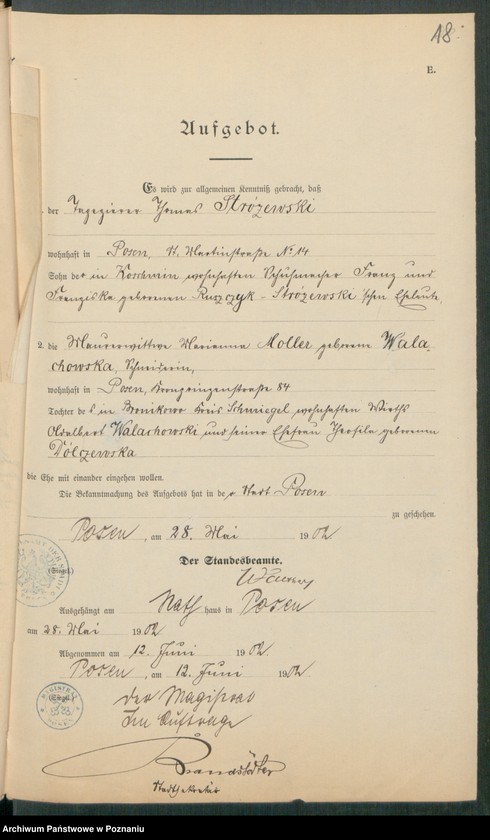 18.
E.
Aufgebot.
Es wird zur allgemeinen Kenntniß gebracht, daß
1. der Tapezierer Thomas Strózewski
wohnhaft in Posen, St. Martinstraße No 14
Sohn der in Koschmin wohnhaften Schuhmacher Franz und
Franziska geborenen Ruszczyk - Strózewski'schen Eheleute
2. die Maurerwittwe Marianna Moller geborene Wala-
chowska, Schneiderin,
wohnhaft in Posen, Kronprinzenstraße 84
Tochter des in Bronikowo Kreis Schmiegel, wohnhaften Wirths
Adalbert Walachowski und seiner Ehefrau Theofila geborenen
Dólczewska
die Ehe mit einander eingehen wollen.
Die Bekanntmachung des Aufgebots hat in der Stadt Posen
zu geschehen.
Posen, am 28. Mai 1902
Der Standesbeamte.
(Siegel.)
Ausgehängt am Rathhaus in Posen
am 28. Mai 1902
Abgenommen am 12. Juni 1902.
Posen, am 12. Juni 1902.
(Siegel.)
Der Magistrat
Im Auftrage
Brandstädter
Stadtsekretär
Archiwum Państwowe w Poznaniu